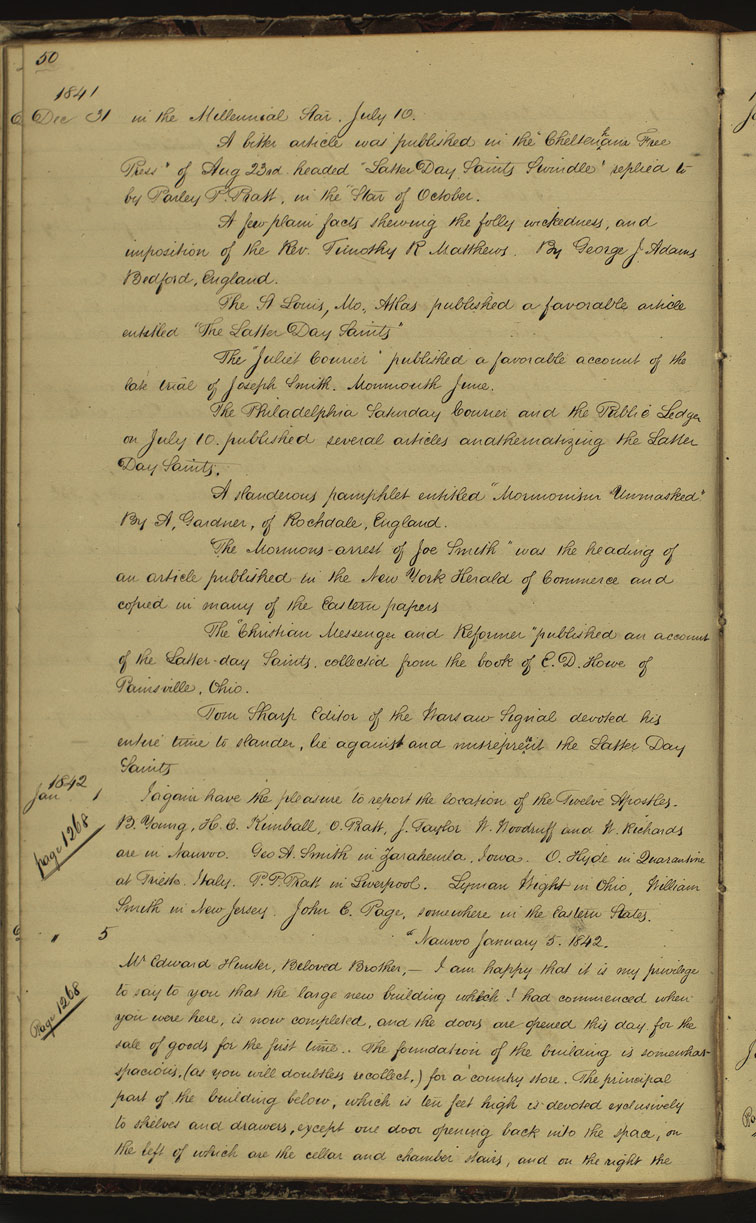 50
1841
Dec 31 in the Millennial Star. July 10.
A bitter article was published in the "Cheltenham Free
Press" of Aug 23rd headed "Latter Day Saints Swindle" replied to
by Parley P. Pratt, in the "Star of October.
A few plain facts shewing the folly wickedness, and
imposition of the Rev. Timothy R Matthews. By George J Adams
Bedford, England.
The St Louis, Mo, Atlas published a favorable article
entitled "The Latter Day Saints"
The "Juliet Courier" published a favorable account of the
late trial of Joseph Smith. Monmouth June.
The Philadelphia Saturday Courier and the Public Ledger
on July 10. published several articles anathematizing the Latter
Day Saints.
A slanderous pamphlet entitled "Mormonism Unmasked"
By A, Gardner, of Rochdale, England.
The Mormons-arrest of Joe Smith" was the heading of
an article published in the New York Herald of Commerce and
copied in many of the Eastern papers
The "Christian Messenger and Reformer" published an account
of the Latter-day Saints, collected from the book of E. D. Howe of
Painsville, Ohio.
Tom Sharp Editor of the Warsaw Signal devoted his
entire time to slander, lie against and misrepresent the Latter Day
Saints
1842
Jan 1 I again have the pleasure to report the location of the Twelve Apostles.
page 1268
B. Young, H. C. Kimball, O. Pratt, J. Taylor W. Woodruff and W. Richards
are in Nauvoo. Geo A. Smith in Zarahemla, Iowa. O. Hyde in Quarantine
at Trieste. Italy. P. P. Pratt in Liverpool. Lyman Wight in Ohio, William
Smith in New Jersey. John E. Page, somewhere in the Eastern States.
" 5 "Nauvoo January 5. 1842.
Mr Edward Hunter, Beloved Brother,— I am happy that it is my privilege
Page 1268
to say to you that the large new building which I had commenced when
you were here, is now completed, and the doors are opened this day for the
sale of goods for the first time.. The foundation of the building is somewhat
spacious, (as you will doubtless recollect,) for a country store. The principal
part of the building below, which is ten feet high is devoted exclusively
to shelves and drawers, except one door opening back into the space, on
the left of which are the cellar and chamber stairs, and on the right the